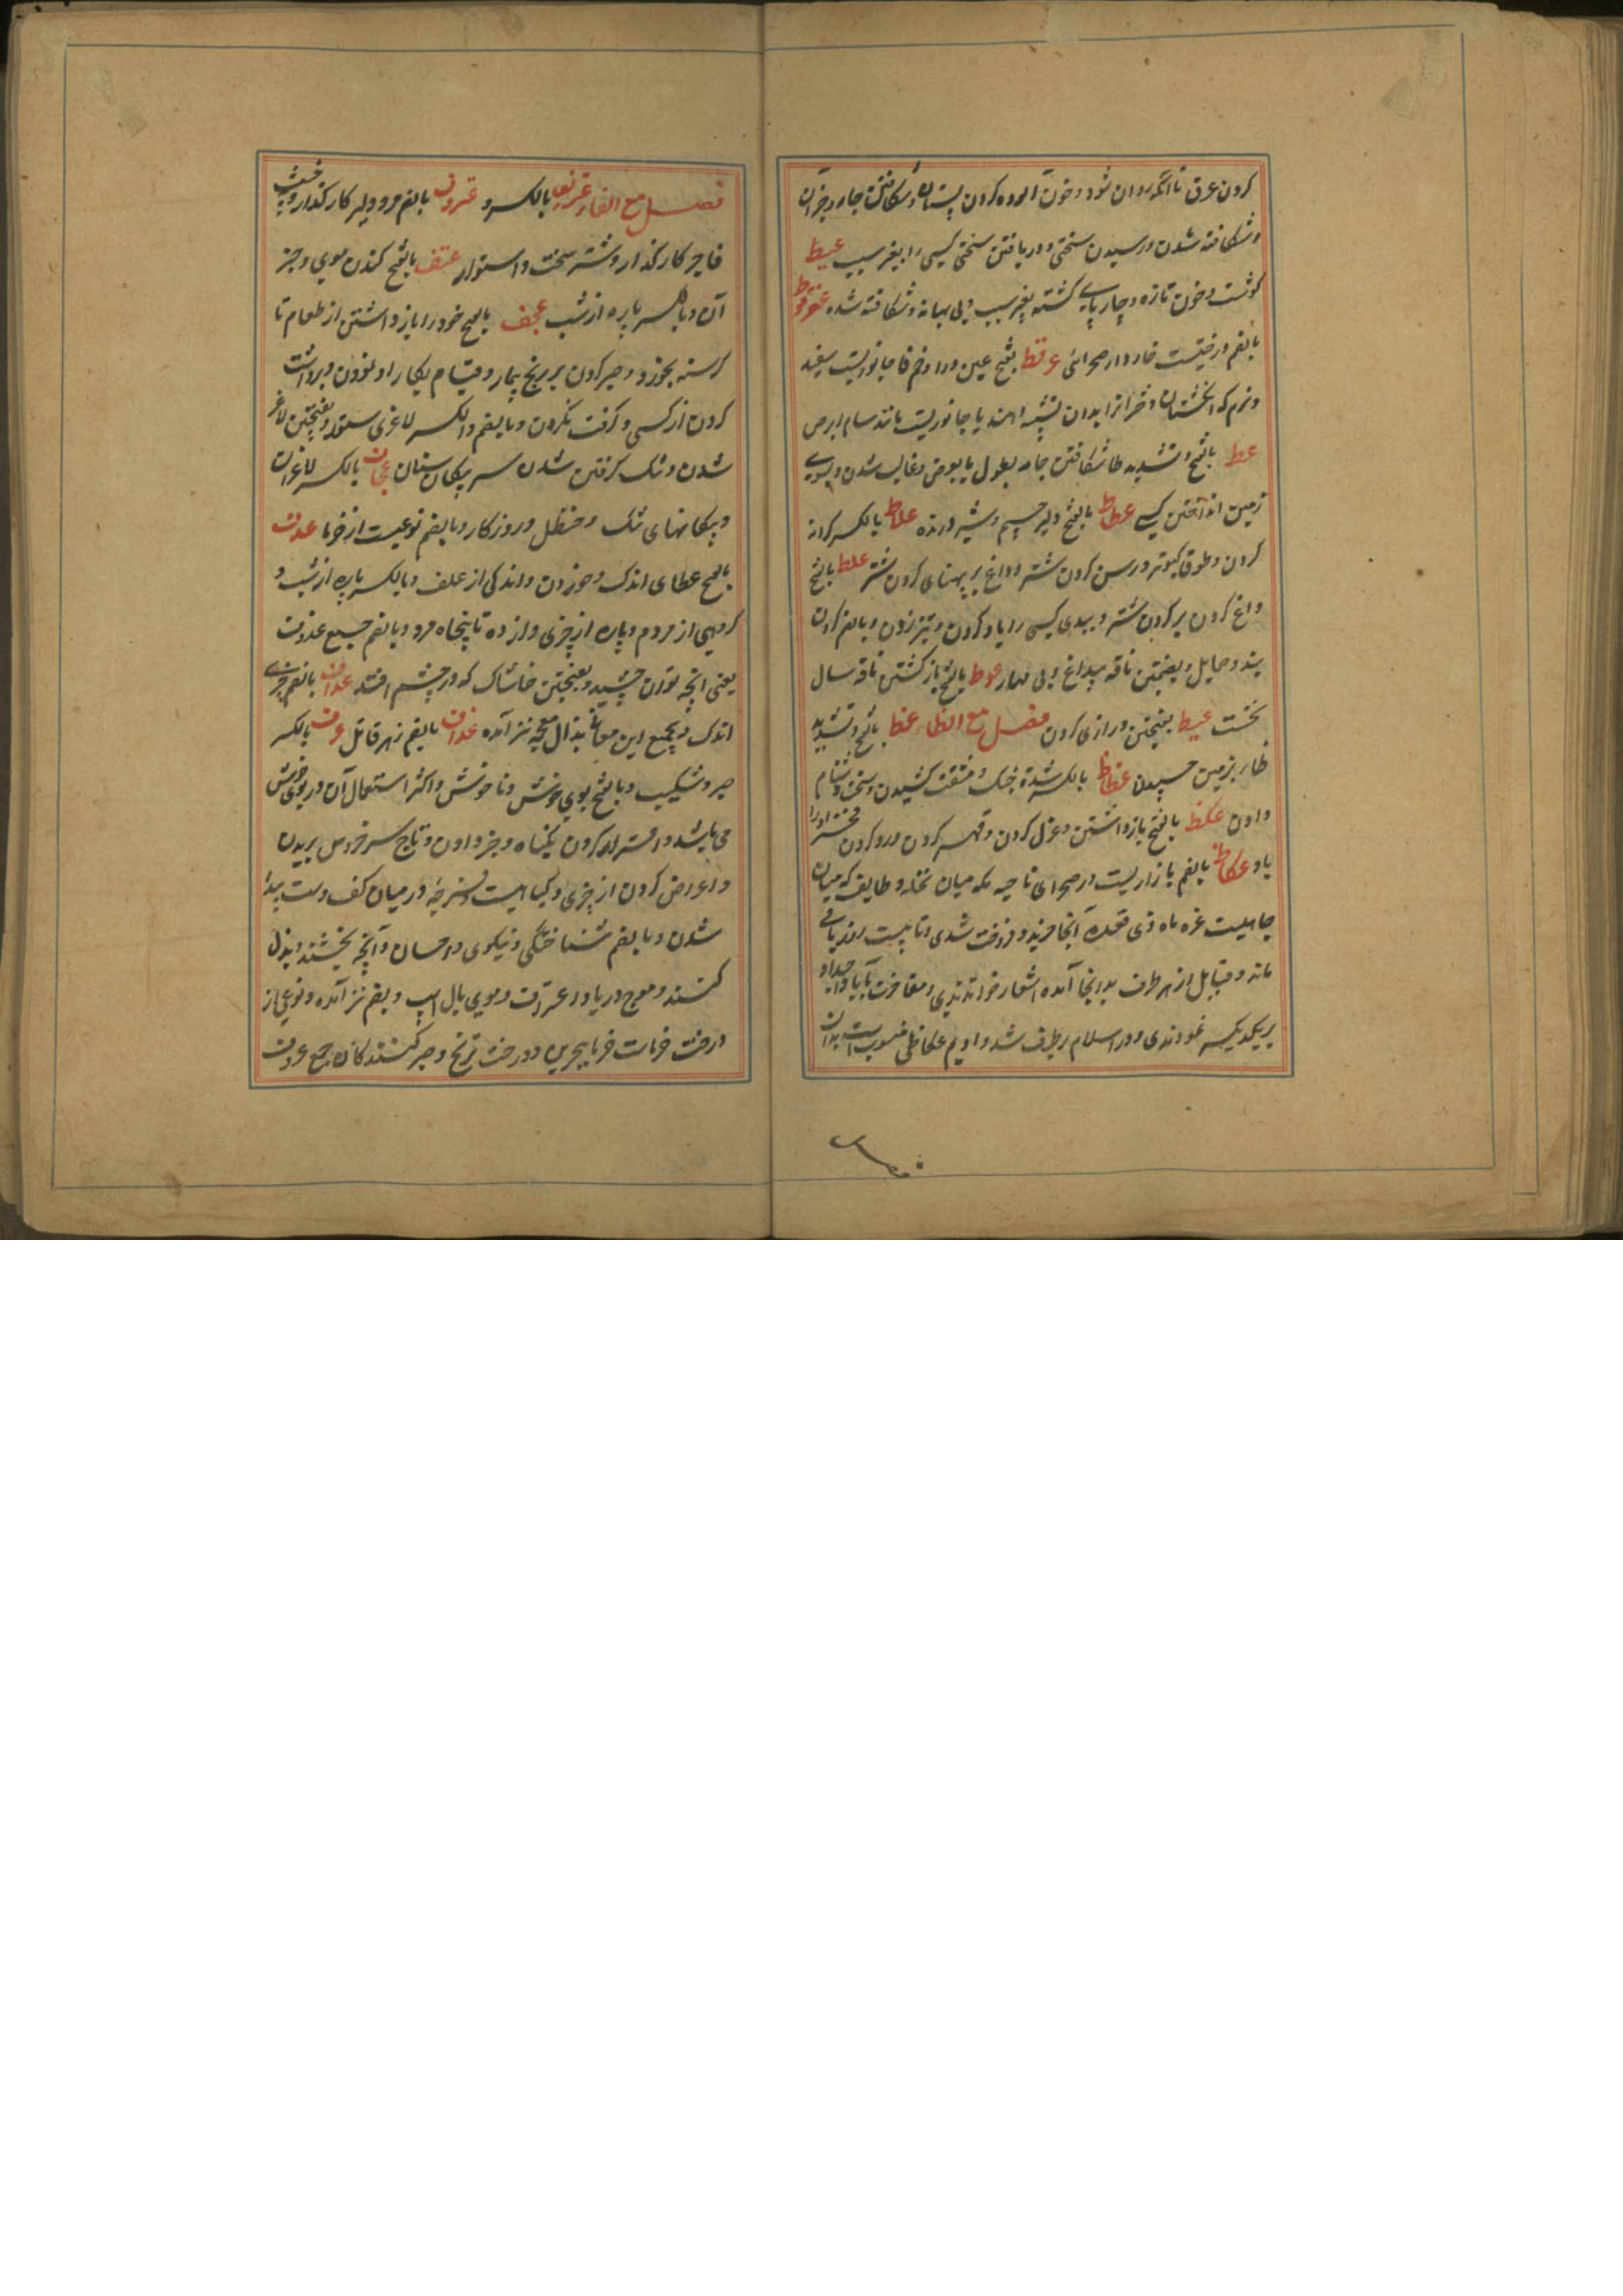 کردن عرق تا آنکه روان شود و خون آلوده کردن پستان و شکافتن جامه و جز آن
و شکافته شدن و رسیدن سختی و دریافتن سختی کسی را بغیر سبب عبیط
گوشت و خون تازه و چارپای کشته بغیر سبب و بی بهانه و شکافته شده
بالضم درختیست خاردار صحرائی عرقط بفتح عین و را و ضم فا جانوریست سفید
و نرم که انگشتان دختران را بدان تشبیه دهند یا جانوریست مانند سام ابرص
عط بالفتح و تشدید طا شکافتن جامه بطول یا بعرض و غالب شدن و بسوی
زمین انداختن کسی عطاط بالفتح دلیر جسیم و شیر درنده علاط بالکسر کرانه
گردن و طوق کبوتر و رسن گردن شتر و داغ بر پهنای گردن شتر علط بالفتح
داغ کردن بر گردن شتر و ببدی کسی را یاد کردن و تیر زدن و بالضم
بند و حمایل و بضمتین ناقه بیداغ و بی مهار عوط بالفتح باز گشتن ناقه سال
نخست عیط بفتحتین درازی گردن فصل مع الظاء عظ بالفتح و تشدید
ظا بر زمین چسپیدن عظاظ بالکسر شدة جنگ و مشقت کشیدن و سخت و دشنام
دادن عکظ بالفتح بازداشتن و عزل کردن و قهر کردن و رد کردن
یاد عکاظ بالضم بازاریست در صحرای ناحیه مکه میان نخله و طایف که میان
جاهلیت غره ماه ذی قعده آنجا خرید و فروخت شدی و تا بیست روز باقی
ماند و قبایل از هر طرف بدانجا آمده اشعار خواندندی و مفاخرت بآبا و اجداد
بر یکدیگر نمودندی و در اسلام برطرف شد و ادیم عکاظی منسوب است بدان
فصل مع الفاء عتریف بالکسر و عتروف بالضم مرد دلیر کارگذار و خبیث
فاجر کارگذار و شتر سخت و استوار عتف بالفتح کندن موی و جز
آن و بالکسر پاره از شب عجف بالفتح خود را باز داشتن از طعام تا
گرسنه بخورد و صبر کردن بر رنج بیمار و قیام بکار او نمودن و برداشت
کردن از کسی و گرفت نکردن و بالضم و الکسر لاغری ستور و بفتحتین لاغر
شدن و تنک گرفتن شدن سر پیکان سنان عجاف بالکسر لاغران
و پیکانهای تنک و حنظل و روزگار و بالضم نوعیست از خرما عدف
بالفتح عطای اندک و خوردن و اندکی از علف و بالکسر پاره از شب و
گروهی از مردم و پاره از چیزی و از ده تا پنجاه مرد و بالضم جمع عدوف
یعنی آنچه توان چشید و بفتحتین خاشاک که در چشم افتد عداف بالضم چیزی
اندک و بجمیع این معانی بذال معجمه نیز آمده عذاف بالضم زهر قاتل عرف بالکسر
صبر و شکیب و بالفتح بوی خوش و ناخوش و اکثر استعمال آن در بوی خوش
می باشد و اقرار کردن بگناه و جزا دادن و تاج سر خروس بریدن
و اعراض کردن از چیزی و گیاهیست و قرحه در میان کف دست پیدا
شدن و بالضم شناختگی و نیکوی و احسان و آنچه بخشند و بذل
کنند و موج دریا و اعتراف و موی یال اسپ و بضم نیز آمده و نوعی از
درخت خرماست خرما ببحرین و درخت ترنج و صبر کنندگان جمع عروف